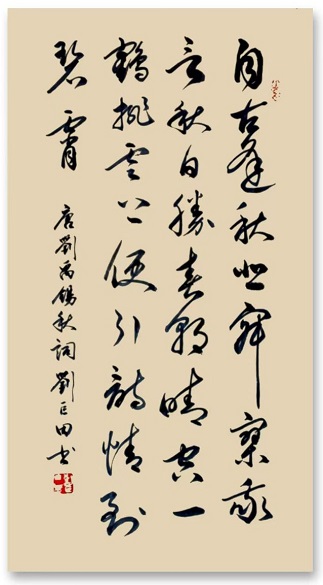 自古逢秋悲寂寥我
言秋日胜春朝晴空一
鹤排云上便引诗情到
碧霄
唐劉禹锡秋詞劉巨田书